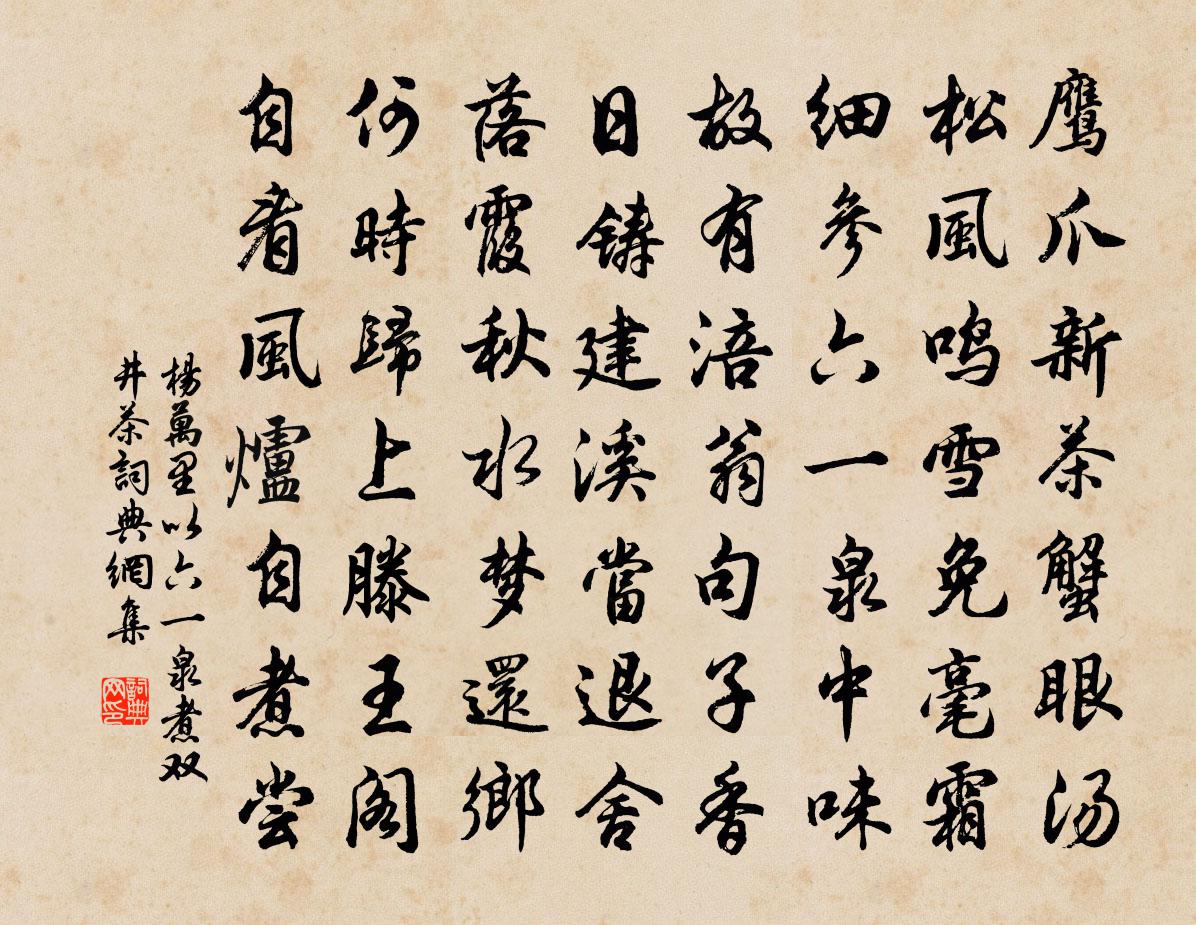 鷹爪新茶蟹眼汤
松風鳴雪兔毫霜
細參六一泉中味
故有涪翁句子香
日鑄建溪當退舍
落霞秋水梦還鄉
何時歸上滕王閣
自看風爐自煮尝
楊萬里以六一泉煮双
井茶詞典網集
詞典网印